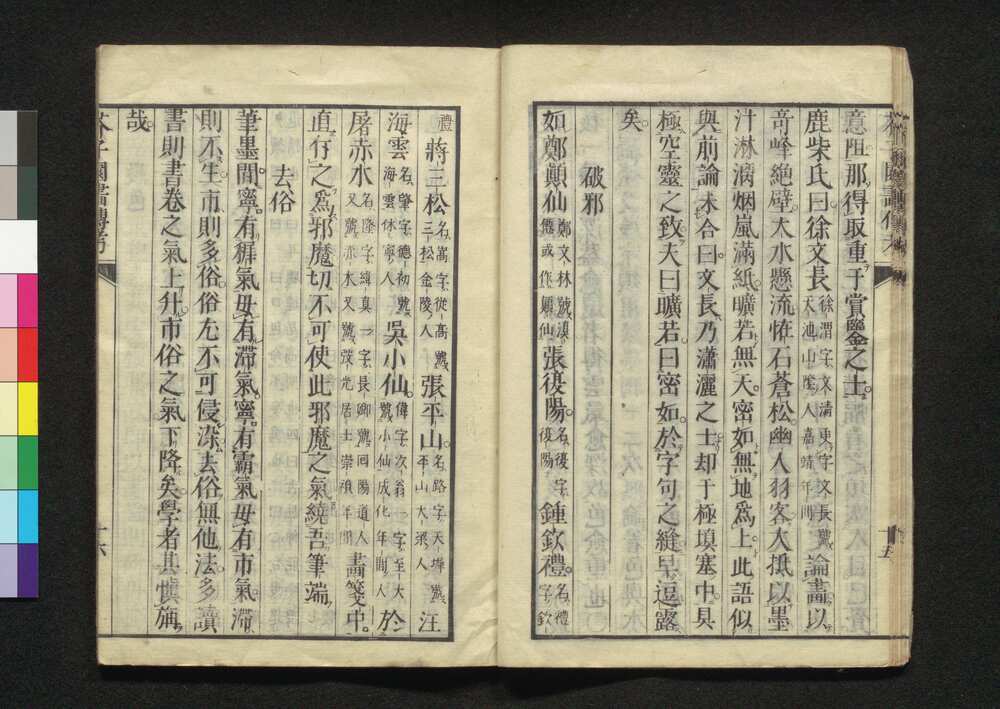 意阻那得取重于賞鑒之士
鹿柴氏曰徐文長徐渭字文清更字文長號天池山陰人嘉靖年間論畫以
奇峰絶壁大水懸流恠石蒼松幽人羽客大抵以墨
汁淋漓烟嵐滿紙曠若無天密如無地爲上此語似
與前論未合曰文長乃瀟灑之士却于極填塞中具
極空靈之致夫曰曠若曰密如於字句之縫早逗露
矣
破邪
如鄭顛仙鄭文林號滇僊或作顛仙張復陽名復字復陽鍾欽禮名禮字欽
十五
禮蔣三松名嵩字從高號三松金陵人張平山名路字天埀號平山大梁人汪
海雲名肇字德初號海雲休寧人吳小仙偉字次翁一字至大號小仙成化年間人於
屠赤水名隆字緯真一字長卿號冋陽道人又號赤水又號溟光居士崇禎年間畫箋中
直斥之爲邪魔切不可使此邪魔之氣繞吾筆端
去俗
筆墨間寧有穉氣毋有滯氣寧有霸氣毋有市氣滯
則不生市則多俗俗尤不可侵染去俗無他法多讀
書則書卷之氣上升市俗之氣下降矣學者其慎旃
哉
芥子園畫傳
十六